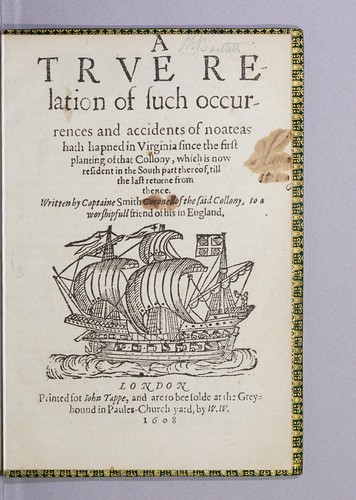 A
TRVE RE-
lation of such occur-
rences and accidents of noateas
hath hapned in Virginia since the first
planting of that Collony, which is now
resident in the South part thereof, till
the last returne from
thence.
Written by Captaine Smith Coronell of the said Collony, to a
worshipfull friend of his in England.
LONDON
Printed for Iohn Tappe, and are to bee solde at the Grey-
hound in Paules-Church-yard, by W.W.
1608